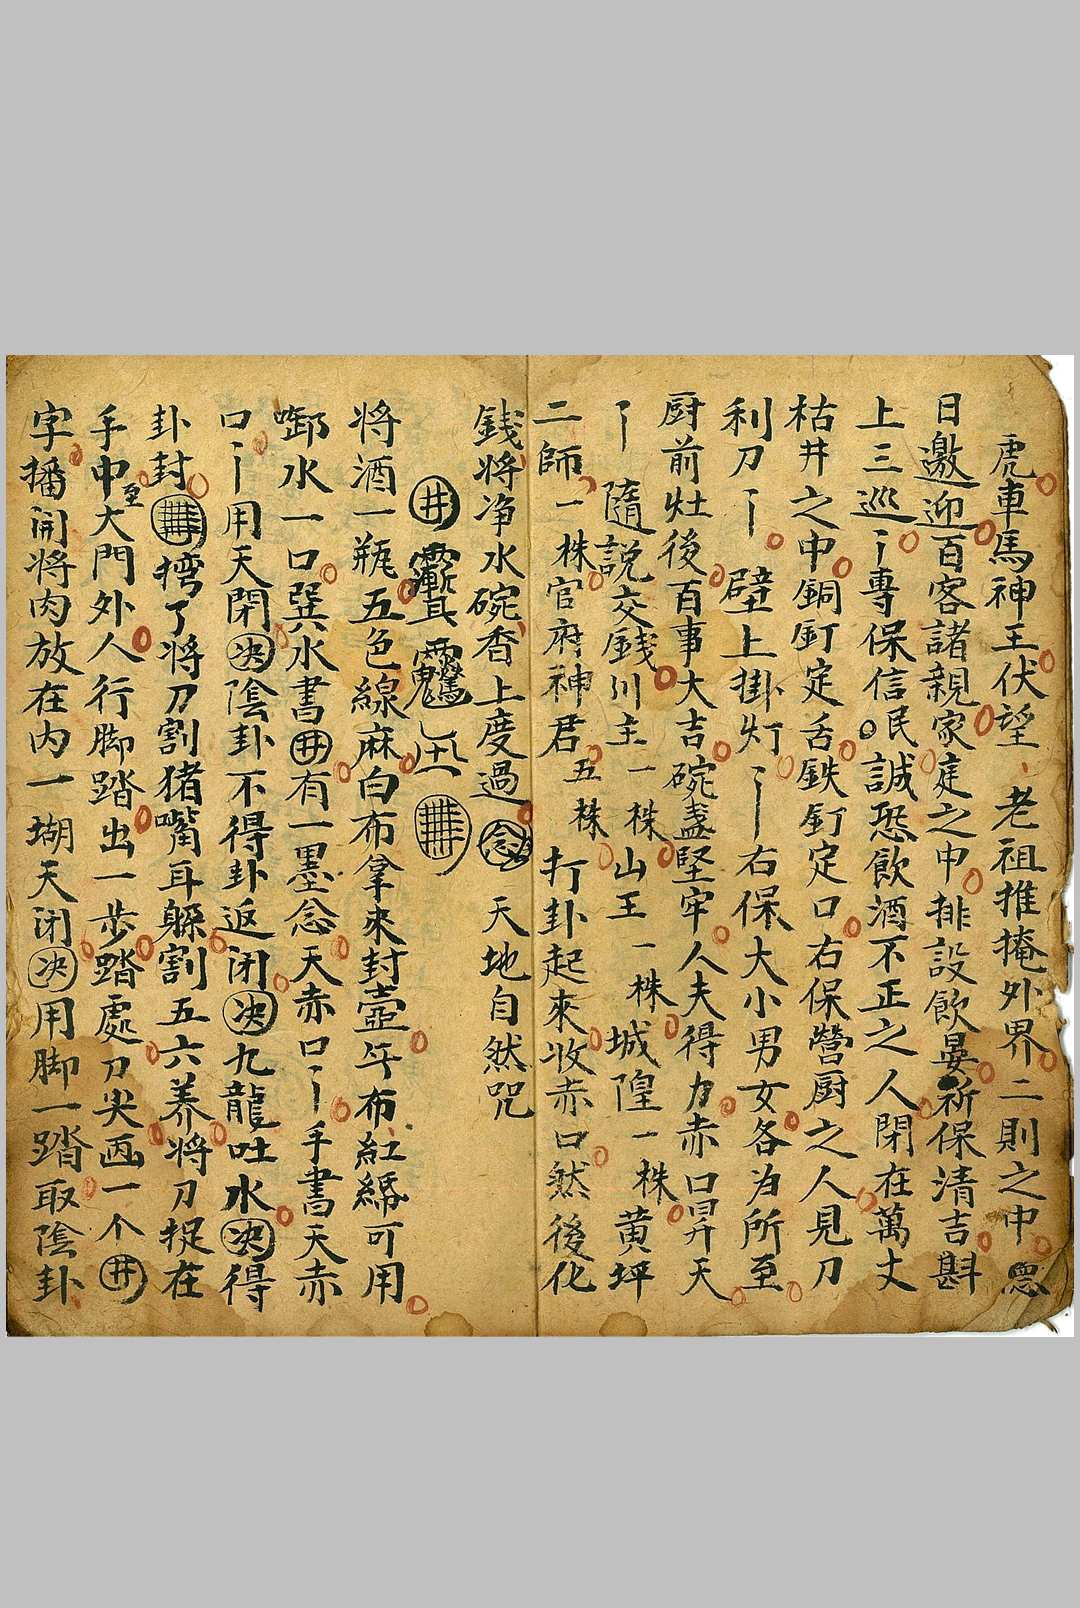 虎車馬神王伏望老祖推掩外界二則之中
日邀迎百客諸親家庭之中排設飲宴祈保清吉斟
上三巡〻專保信民誠恐飲酒不正之人閉在萬丈
枯井之中銅釘定舌鉄釘定口右保營厨之人見刀
利刀〻壁上掛灯〻右保大小男女各为所至
厨前灶後百事大吉碗盞堅牢人夫得力赤口昇天
〻隨說交錢川主一株山王一株城隍一株黄坪
二師一株官府神君五株打卦起來收赤口然後化
錢将净水碗香上度過念天地自然咒
井
将酒一瓶五色線麻白布拿來封壺午布紅綿可用
啣水一口巽水書井有一墨念天赤口〻手書天赤
口〻用天閉决陰卦不得卦返闭决九龍吐水决得
卦封了将刀割猪嘴耳躲割五六养将刀捉在
手中至大門外人行脚踏出一步踏處刀尖画一个井
字播開将肉放在内一塴天闭决用脚一踏取陰卦